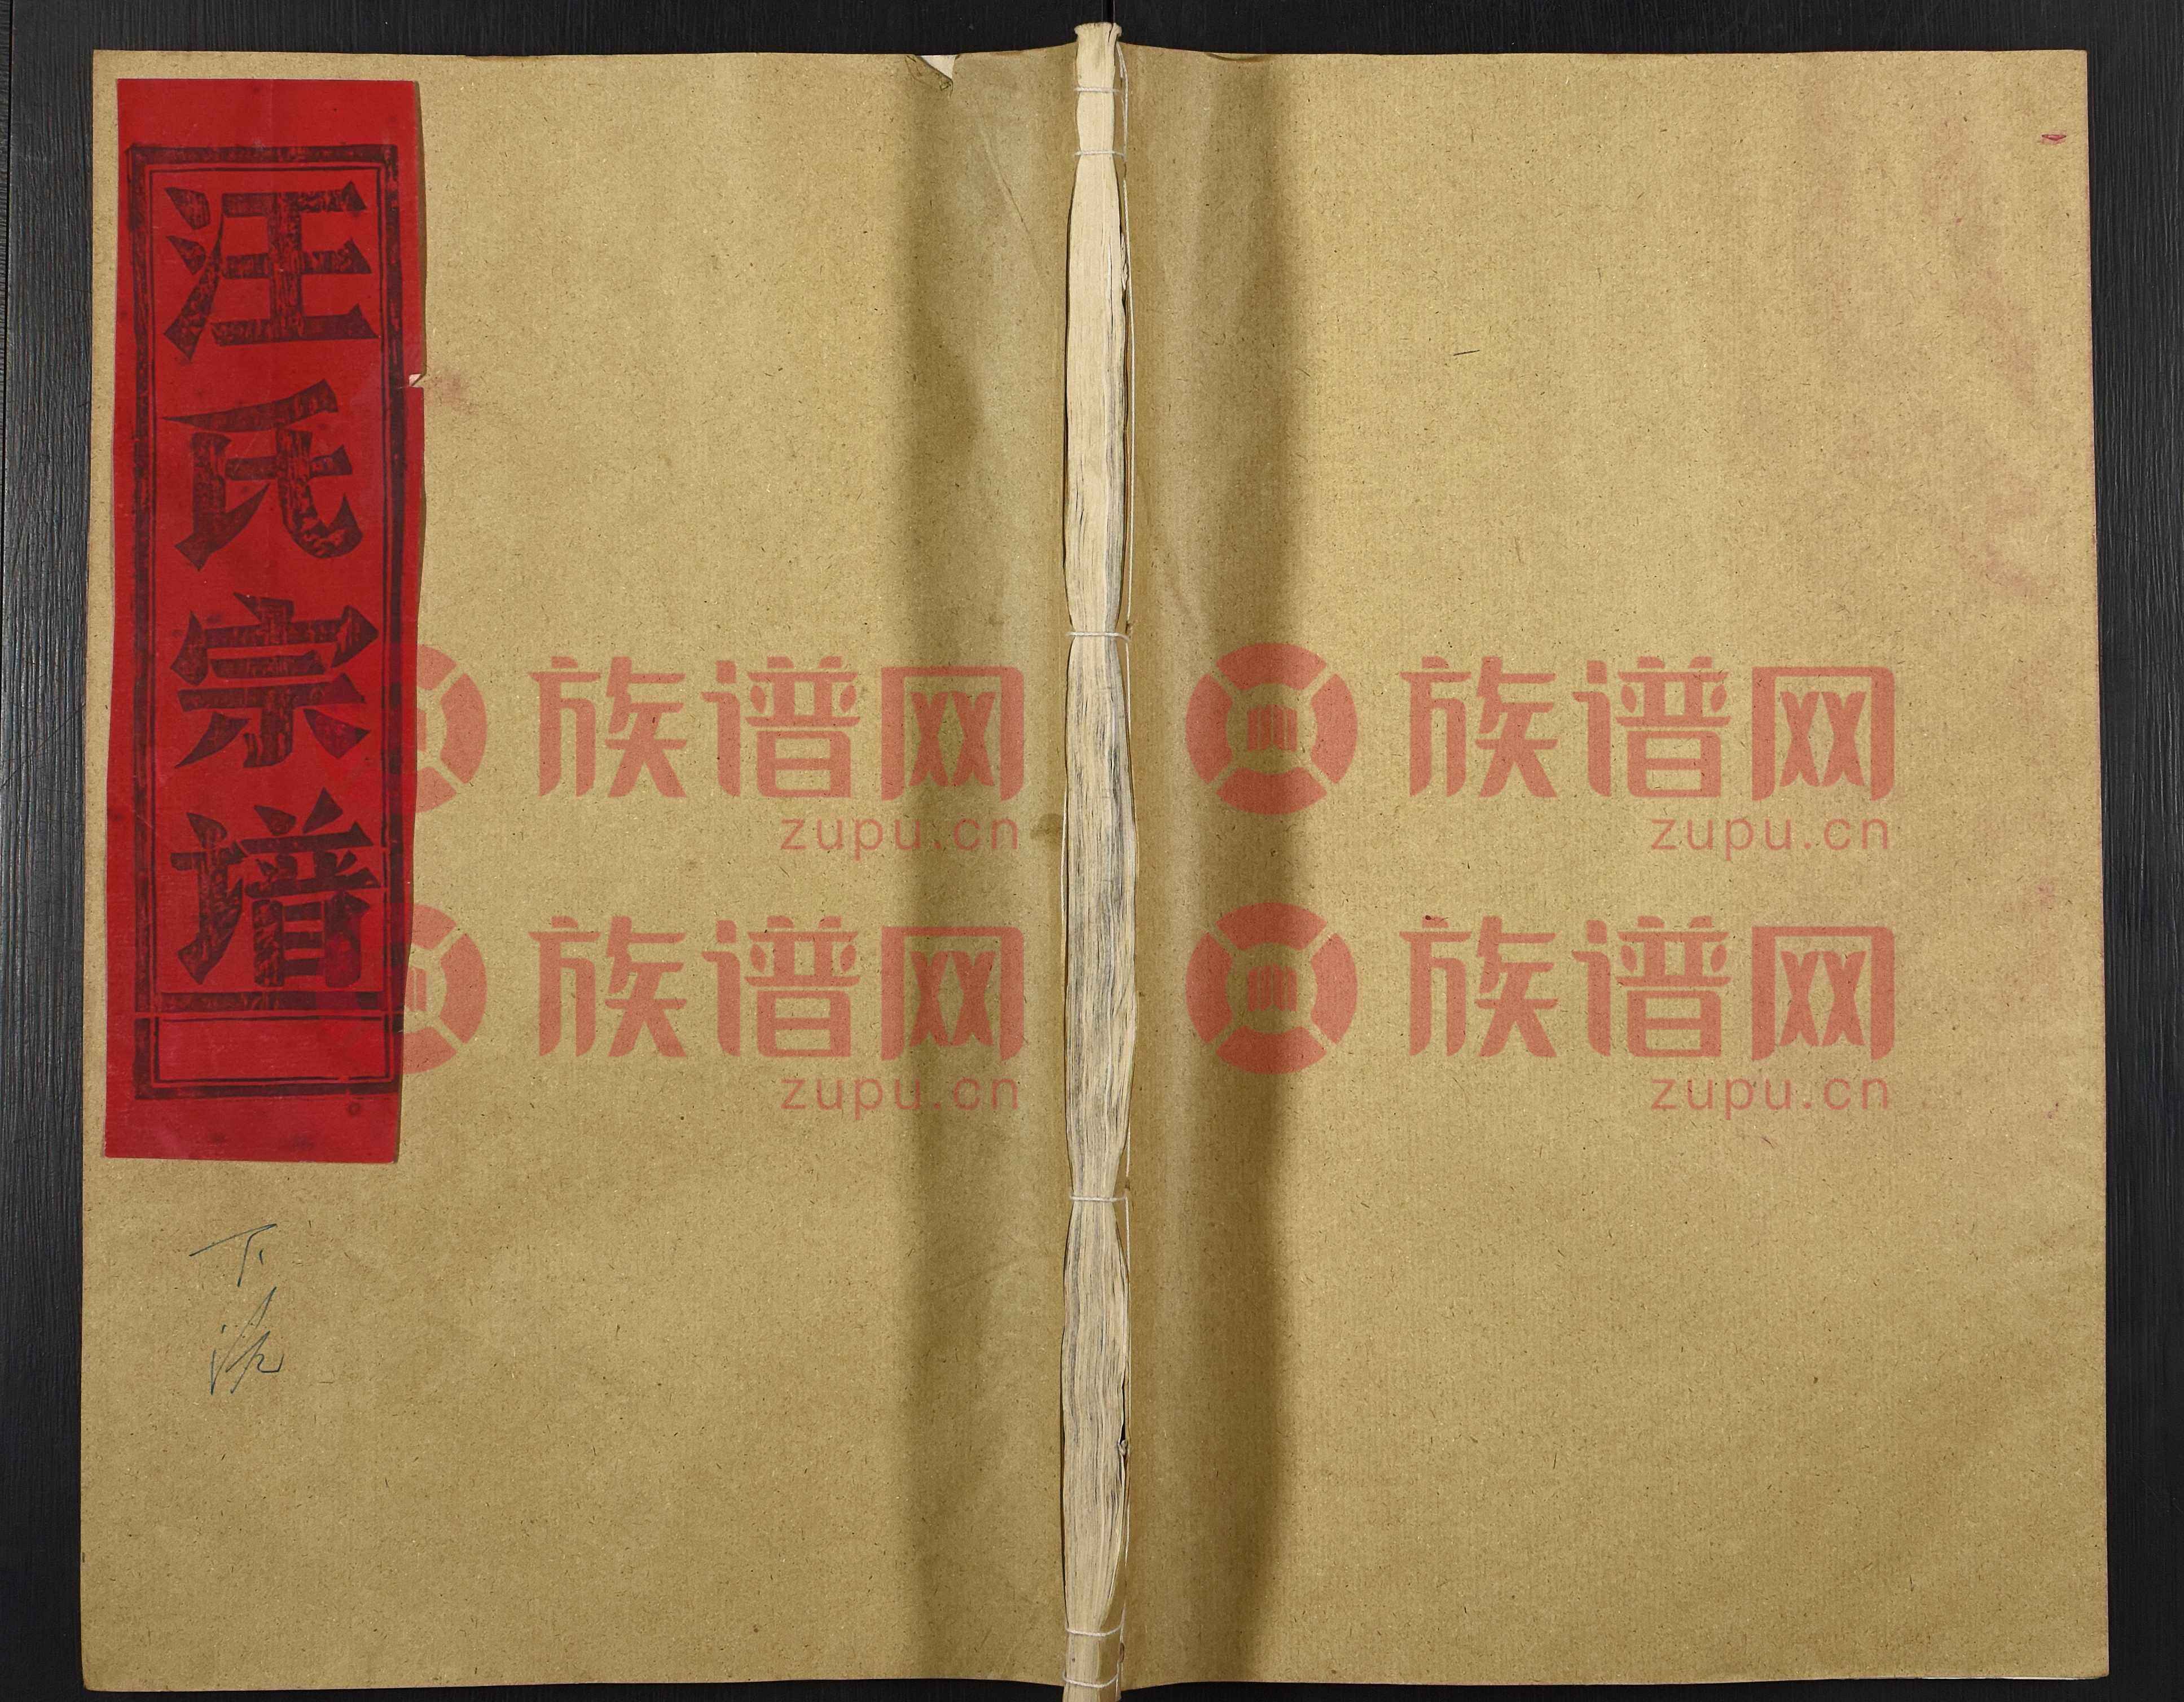 汪氏宗谱
族谱网
zupu.cn
族谱网
zupu.cn
族谱网
zupu.cn
族谱网
zupu.cn